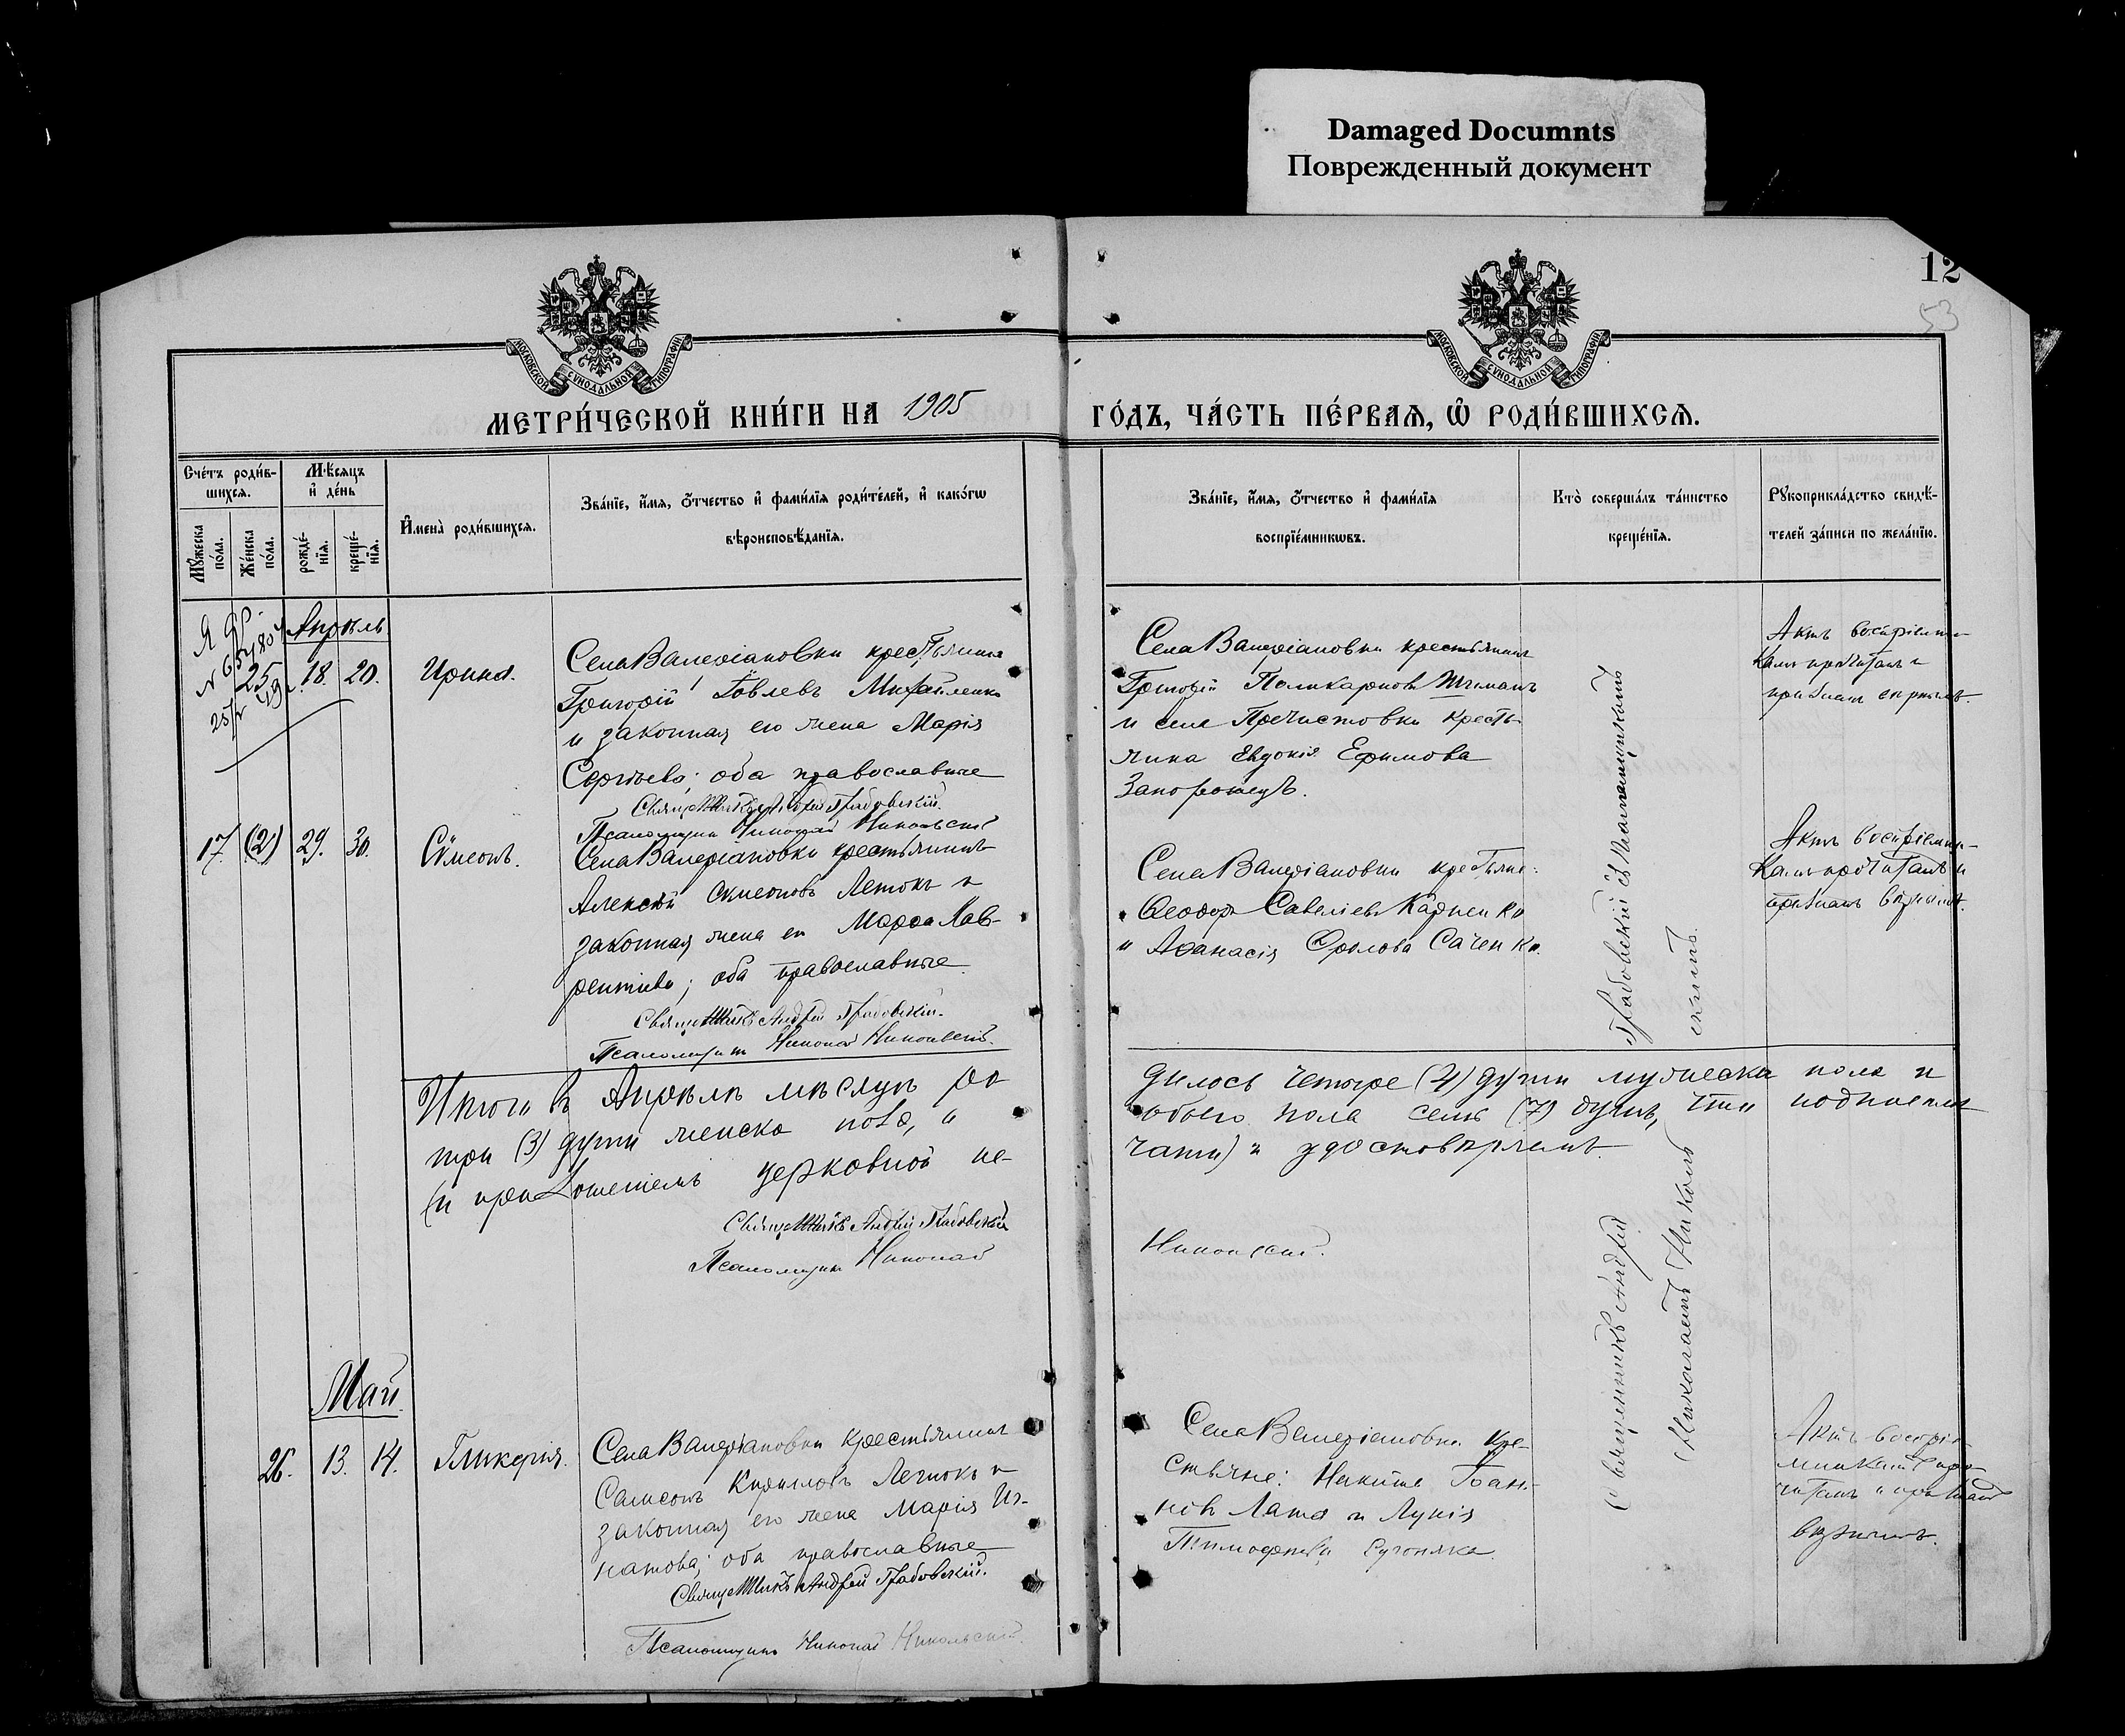 Damaged Documnts
Поврежденный документ
12
53
МОСКОВСКОЙ СѴНОДАЛЬНОЙ ТИПОГРАФІИ
МОСКОВСКОЙ СѴНОДАЛЬНОЙ ТИПОГРАФІИ
МЕТРИ́ЧЕСКОЙ КНИ́ГИ НА 1905
ГО́ДЪ, ЧА́СТЬ ПЕ́РВАѦ, Ѡ҆ РОДИ́ВШИХСѦ.
Счéтъ роди́в-
шихсѧ.
Мꙋ́жеска по́ла.
Же́нска по́ла.
Мѣ́сѧцъ
и҆ де́нь
рожде́-
нїѧ.
креще́-
нїѧ.
И҆мена̀ роди́вшихсѧ.
Зва́нїе, и҆́мѧ, ѻ҆́тчество и҆ фами́лїѧ роди́телей, и҆ како́гѡ
вѣроисповѣ́данїѧ.
Зва́нїе, и҆́мѧ, ѻ҆́тчество и҆ фами́лїѧ
воспрїе́мникѡвъ.
Кто̀ соверша́лъ та́инство
креще́нїѧ.
Рꙋкоприкла́дство свидѣ́-
телей за́писи по жела́нїю.
Апрѣль
25 18. 20. Ирина.
Села Валеріановки крестьянинъ
Григорій Іовлевъ Михайленко
и законная его жена Марія
Сергіева; оба православные
Священникъ Андрей Грабовскій.
Псаломщикъ Николай Никольскій
Села Валеріановки крестьянинъ
Григорій Поликарповъ
и села Пречистовки кресть-
янка Евдокія Ефимова
Запорожецъ.
Актъ воспріемни-
камъ прочитанъ и
признанъ вѣрнымъ.
17 (2) 29. 30. Сѷмеонъ.
Села Валеріановки крестьянинъ
Алексѣй Сѷмеоновъ Легюкъ и
законная жена его Марѳа Лав-
рентіева; оба православные
Священникъ Андрей Грабовскій.
Псаломщикъ Николай Никольскій.
Села Валеріановки крестьяне:
Ѳеодоръ Савеліевъ Карпенко
и Аѳанасія Фролова Саченко.
Актъ воспріемни-
камъ прочитанъ и
признанъ вѣрнымъ.
Итого въ Апрѣлѣ мѣсяцѣ ро
дилось четыре (4) души мужеска пола и
три (3) души женска пола, а
обоего пола семь (7) душъ, что подписомъ
(и приложеніемъ церковной пе-
чати) и удостовѣряемъ.
Священникъ Андрей Грабовскій
Псаломщикъ Николай
Никольскій.
Священникъ Андрей Грабовскій съ
псаломщикомъ
Николаемъ Николь
скимъ.
Май.
26. 13. 14. Гликерія.
Села Валеріановки крестьянинъ
Самсонъ Кирилловъ Легюкъ и
законная его жена Марія Иг-
натова; оба православные
Священникъ Андрей Грабовскій.
Псаломщикъ Николай Никольскій.
Села Валеріановки кре-
стьяне: Никита Іоан-
новъ и Лукія
Тимофеева
Актъ воспріе-
мникамъ про-
читанъ и признанъ
вѣрнымъ.